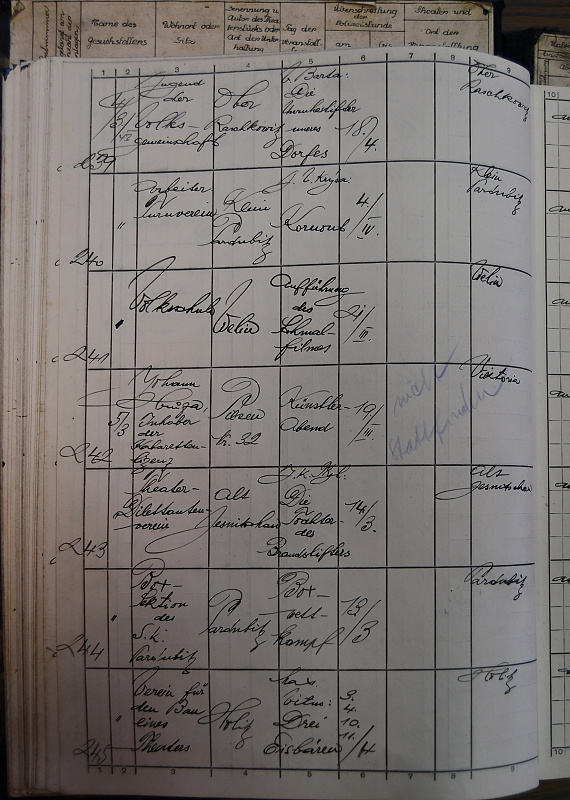 Name des
Gesuchstellers
Wohnort oder
Sitz
Benennung u.
Autor des Thea-
terstücks oder
Art der Unter-
haltung
Tag der
Veranstalt.
Überschreitung
der
Polizeistunde
am
bis
Theater und
Ort der
1 2 3 4 5 6 7 8 9
10
239
Jugend
der
Volks-
gemeinschaft
Ober
Raschkowitz
J. Barta:
Die
Unruhestifter
unseres
Dorfes
18./
4.
Ober
Raschkowitz
240
"
Arbeiter
Turnverein
Klein
Pardubitz
Kornout
4/
IV.
Klein
Pardubitz
241
"
Volksschule
Welin
Aufführung
des
Schmal-
filmes
21/
III.
Welin
242
5/3
Johann
Inhaber
der
Kabarettli-
zenz
Pilsen
Nr. 22
Künstler-
Abend
19/
III.
nicht
stattgefunden
Viktoria
243
Theater-
Dilettanten-
verein
Alt
Jesnitschan
Die
Tochter
des
Brandstifters
14/
3.
Alt
Jesnitschan
244
"
Box-
sektion
des
S.K.
Pardubitz
Pardubitz
Box-
wett-
kampf
13/
3
Pardubitz
245
"
Verein für
den Bau
eines
Theaters
Holitz
Vitus:
Drei
Eisbären
3.
4.
10.
11./4
Holitz
1 2 3 4 5 6 7 8 9
10